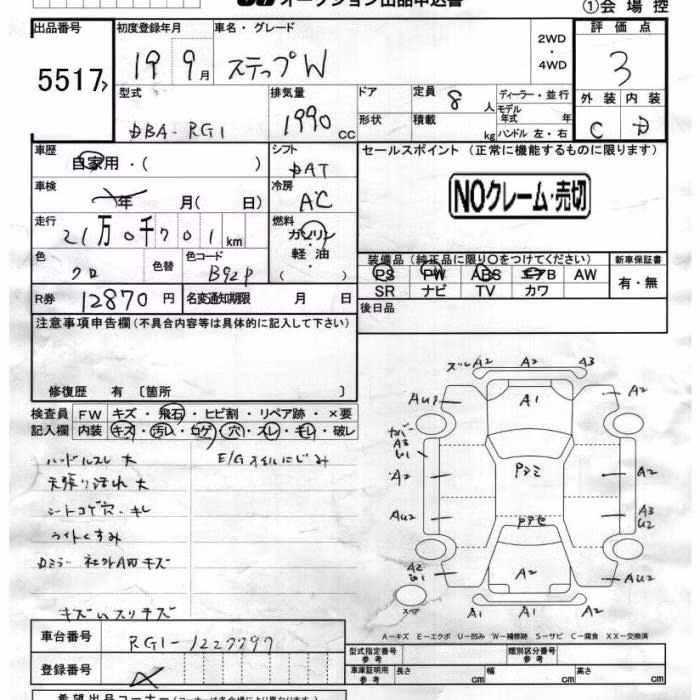 オークション出品申込書
①会場控
出品番号 初度登録年月 車名・グレード 2WD・4WD 評価点
5517 19 9月 ステップW 3
型式 排気量 ドア 定員 8人 ディーラー・並行 外装 内装
DBA-RG1 1990cc 形状 積載 kg モデル年式 年 ハンドル 左・右 C D
車歴 自家用・( ) シフト DAT セールスポイント (正常に機能するものに限ります)
車検 年 月( 日) 冷房 AC NOクレーム・売切
走行 21万0千701km 燃料 ガソリン・軽油・( )
色 クロ 色替 色コード B92P
装備品(純正品に限り○をつけてください) 新車保証書
PS PW ABS エアB AW 有・無
SR ナビ TV カワ
R券 12870円 名変通知期限 月 日 後日品
注意事項申告欄(不具合内容等は具体的に記入して下さい)
修復歴 有 〔箇所 〕
検査員 FW キズ・飛石・ヒビ割・リペア跡・×要
記入欄 内装 キズ・汚れ・コゲ・穴・スレ・キレ・破レ
ハンドルスレ大 E/Gオイルにじみ
天張り汚れ大
シートコゲ穴・キレ
ライトくすみ
キズ凹スリキズ
ズレ A2 A2 A3
AU1 A1 A2
カバー
A3
A2 Pシミ A2
AU2 A3
U2
A2 A2 AU2
スペア A1 A1 A2
A−キズ E−エクボ U−凹み W−補修跡 S−サビ C−腐食 XX−交換済
車台番号 RG1-1227797
型式指定番号 参考 類別区分番号 参考
登録番号
車庫証明用 参考 長さ cm 幅 cm 高さ cm
希望出品コーナー